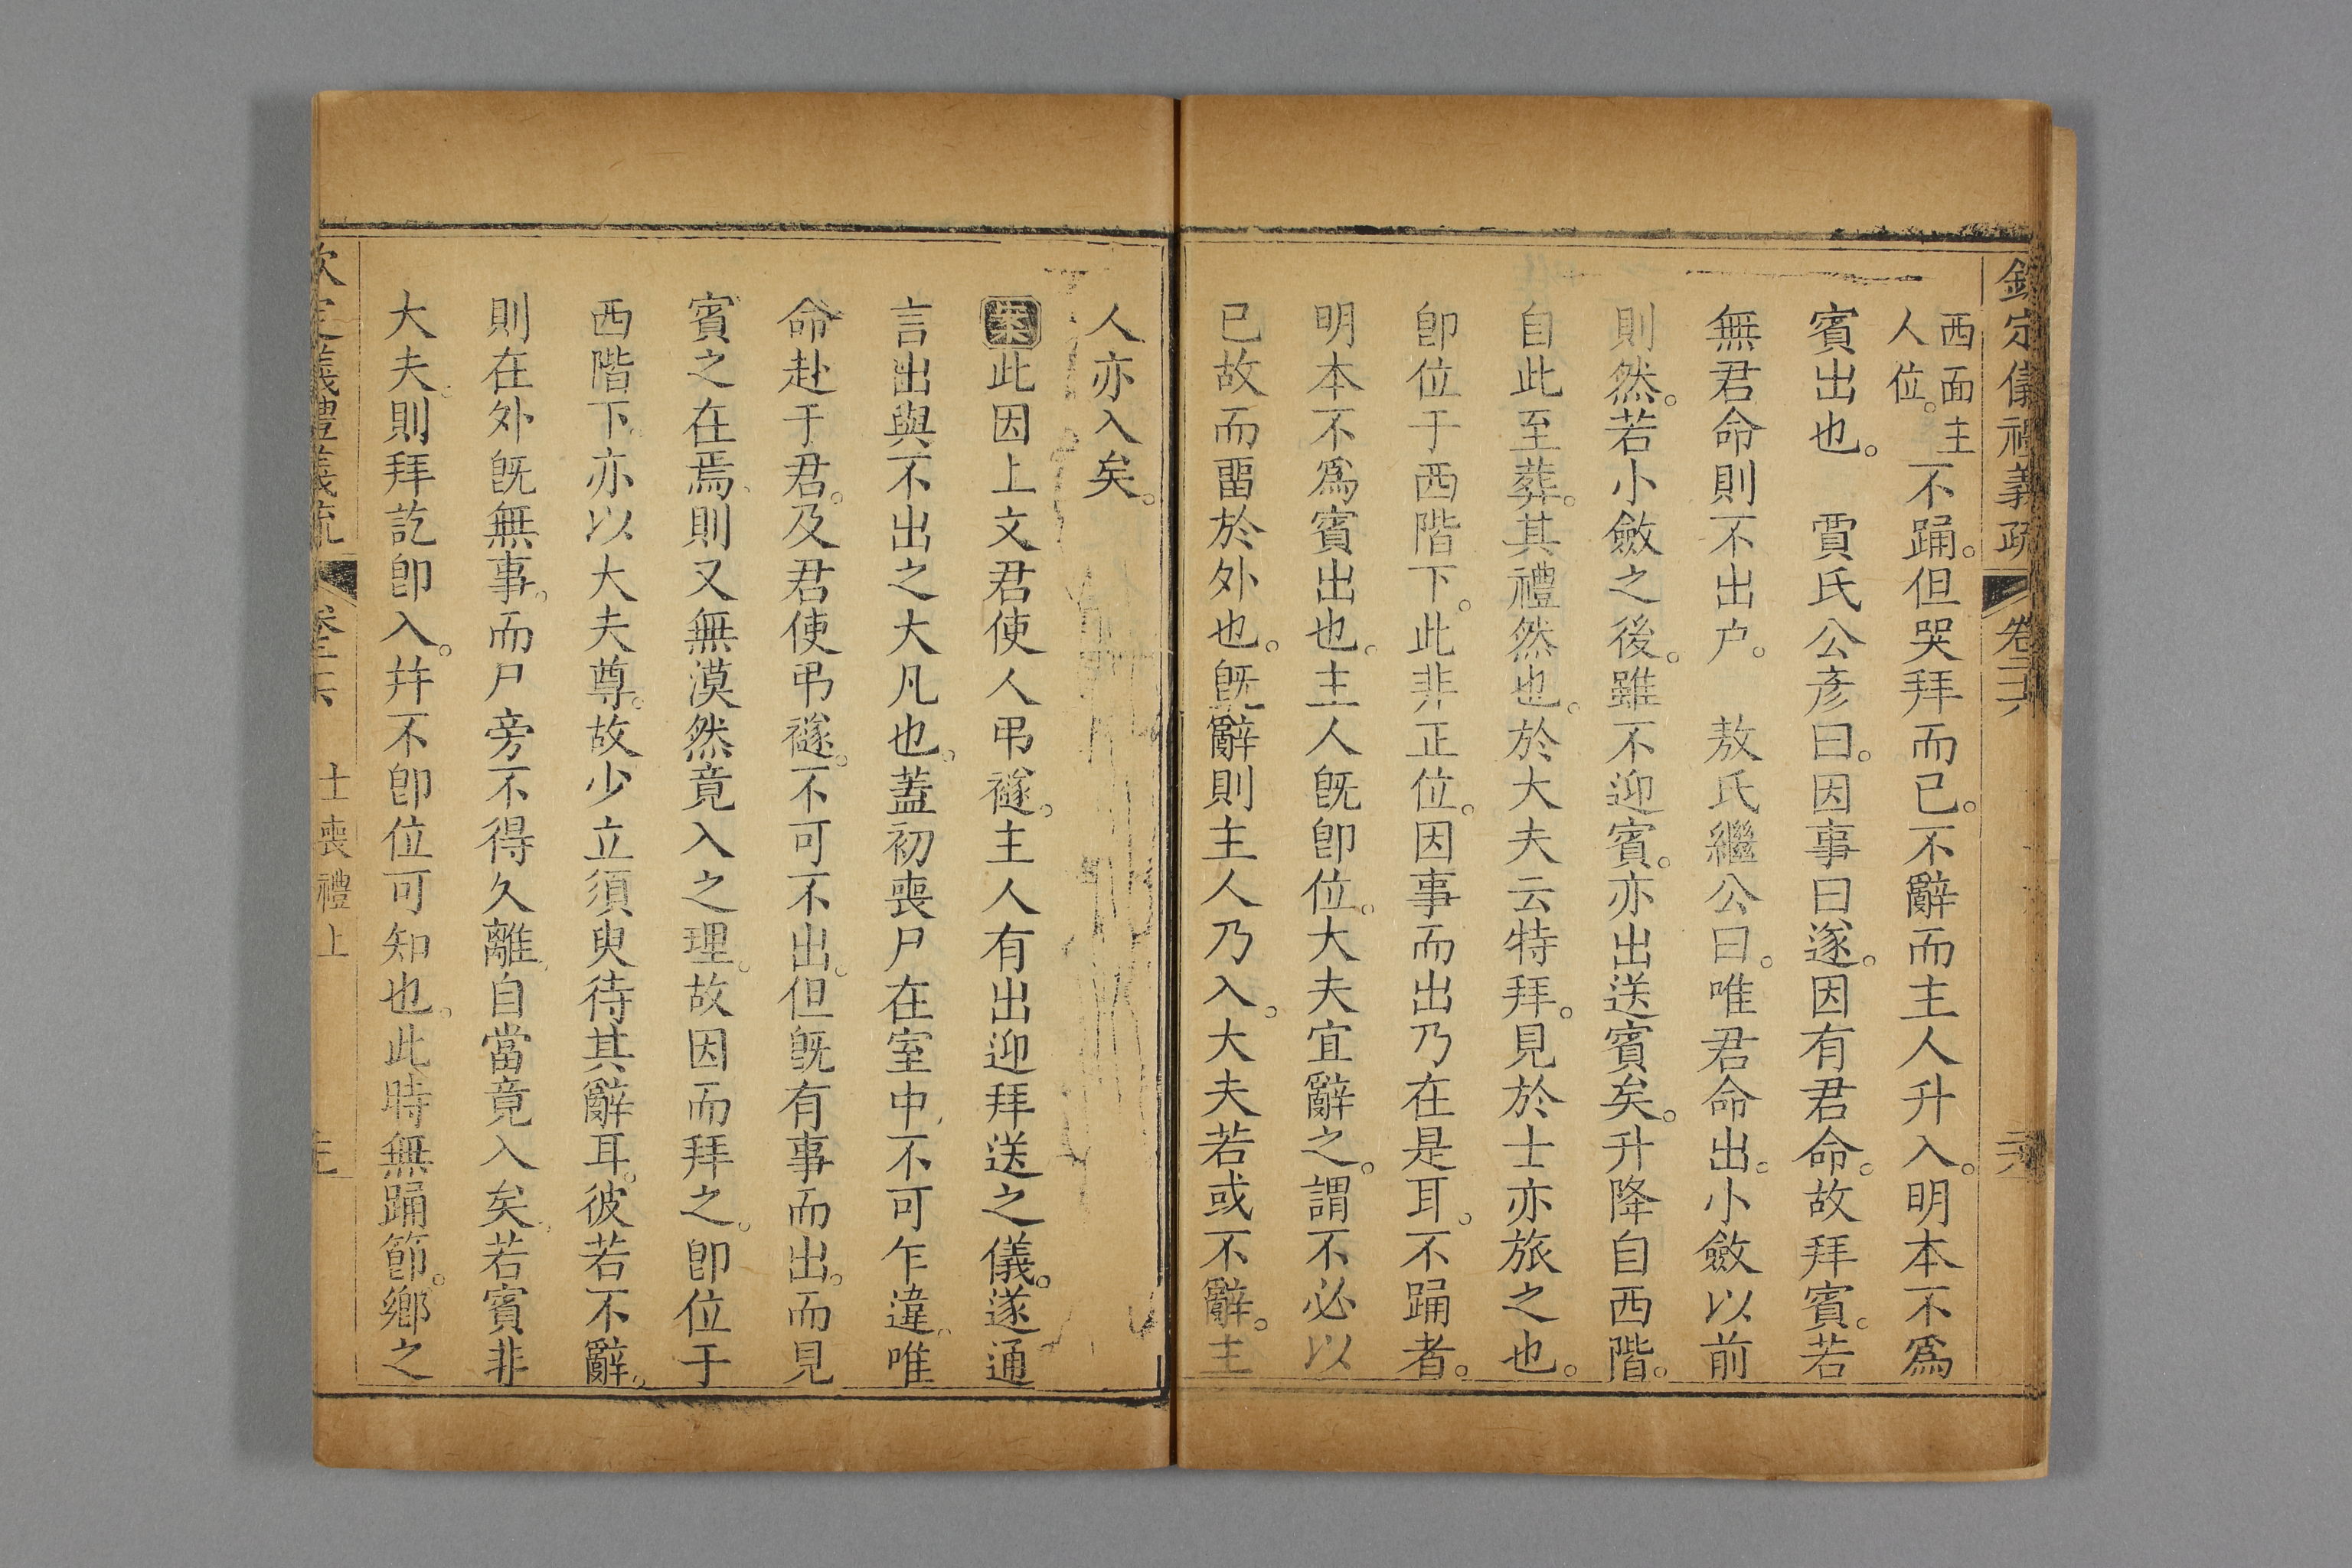 欽定儀禮義疏 卷二十六
西面主
人位。
不踊。但哭拜而已。不辭而主人升入。明本不爲
賓出也。 賈氏公彥曰。因事曰遂。因有君命。故拜賓。若
無君命則不出户。 敖氏繼公曰。唯君命出。小斂以前
則然。若小斂之後。雖不迎賓。亦出送賓矣。升降自西階。
自此至葬。其禮然也。於大夫云特拜。見於士亦旅之也。
卽位于西階下。此非正位。因事而出乃在是耳。不踊者。
明本不爲賓出也。主人旣卽位。大夫宜辭之。謂不必以
已故而畱於外也。旣辭則主人乃入。大夫若或不辭。主
人亦入矣。
案此因上文君使人弔襚。主人有出迎拜送之儀。遂通
言出與不出之大凡也。蓋初喪尸在室中、不可乍違、唯
命赴于君。及君使弔襚。不可不出。但旣有事而出。而見
賓之在焉、則又無漠然竟入之理。故因而拜之。卽位于
西階下。亦以大夫尊。故少立須臾待其辭耳。彼若不辭。
則在外旣無事。而尸旁不得久離、自當竟入矣、若賓非
大夫。則拜訖卽入。幷不卽位可知也。此時無踊節。鄉之
欽定儀禮義疏 卷二十六 士喪禮上